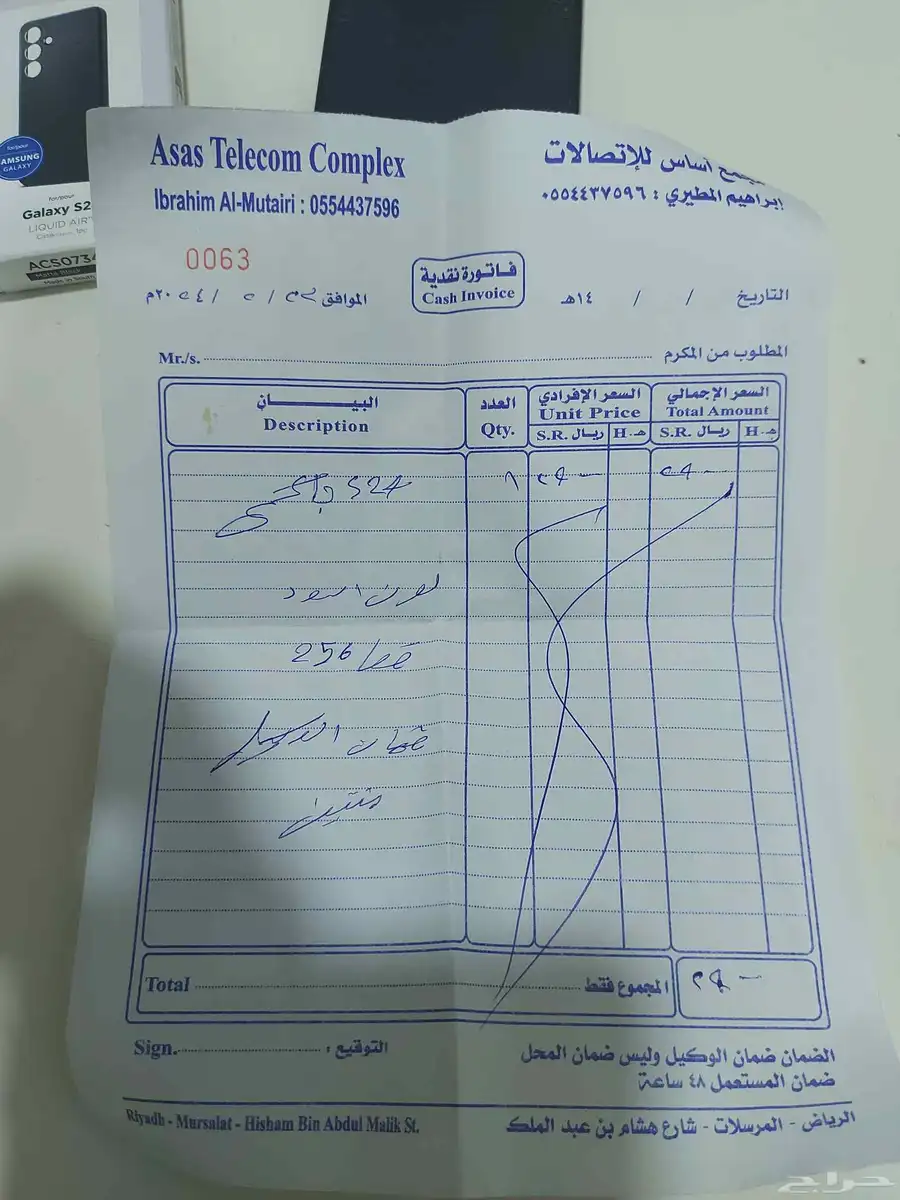 for/pour
SAMSUNG
GALAXY
for/pour
Galaxy S2
LIQUID AIR
ACS0734
Matte Black
Asas Telecom Complex
أساس للإتصالات
Ibrahim Al-Mutairi : 0554437596
إبراهيم المطيري : ٠٥٥٤٤٣٧٥٩٦
0063
فاتورة نقدية
Cash Invoice
التاريخ / / ١٤هـ
الموافق / / ٢٠٢٤م
المطلوب من المكرم
Mr./s.
البيــــــان
Description
العدد
Qty.
السعر الإفرادي
Unit Price
S.R. ريال
H. هـ
السعر الإجمالي
Total Amount
S.R. ريال
H. هـ
S24
١
٢٩٠٠
٢٩٠٠
لون اسود
256
ضمان الوكيل
سنتين
Total
المجموع فقط
٢٩٠٠
Sign.
التوقيع :
الضمان ضمان الوكيل وليس ضمان المحل
ضمان المستعمل ٤٨ ساعة
Riyadh - Mursalat - Hisham Bin Abdul Malik St.
الرياض - المرسلات - شارع هشام بن عبد الملك
حراج